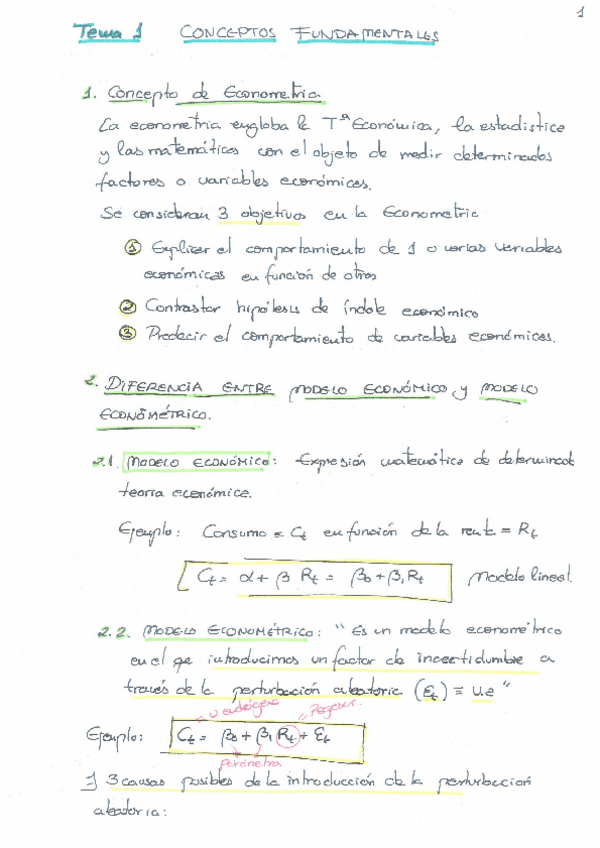 1
Tema 1 CONCEPTOS FUNDAMENTALES
1. Concepto de Econometria
La econometria engloba la Tª Económica, la estadistica
y las matemáticas con el objeto de medir determinados
factores o variables económicas.
Se consideran 3 objetivos en la Econometria
① Explicar el comportamiento de 1 o varias variables
económicas en función de otras
② Contrastar hipótesis de índole económico
③ Predecir el comportamiento de variables económicas.
2. DIFERENCIA ENTRE MODELO ECONÓMICO y MODELO
ECONÓMÉTRICO.
2.1. MODELO ECONÓMICO: Expresión matemática de determinada
teoría económica.
Ejemplo: Consumo = Ct en función de la renta = Rt
Ct = α + β Rt = β0 + β1 Rt Modelo lineal.
2.2. MODELO ECONOMÉTRICO: "Es un modelo econométrico
en el qe introducimos un factor de incertidumbre a
través de la perturbación aleatoria (Et) = u.e"
Ejemplo: Ct = β0 + β1 Rt + Et
parámetros
3 causas posibles de la introducción de la perturbación
aleatoria: